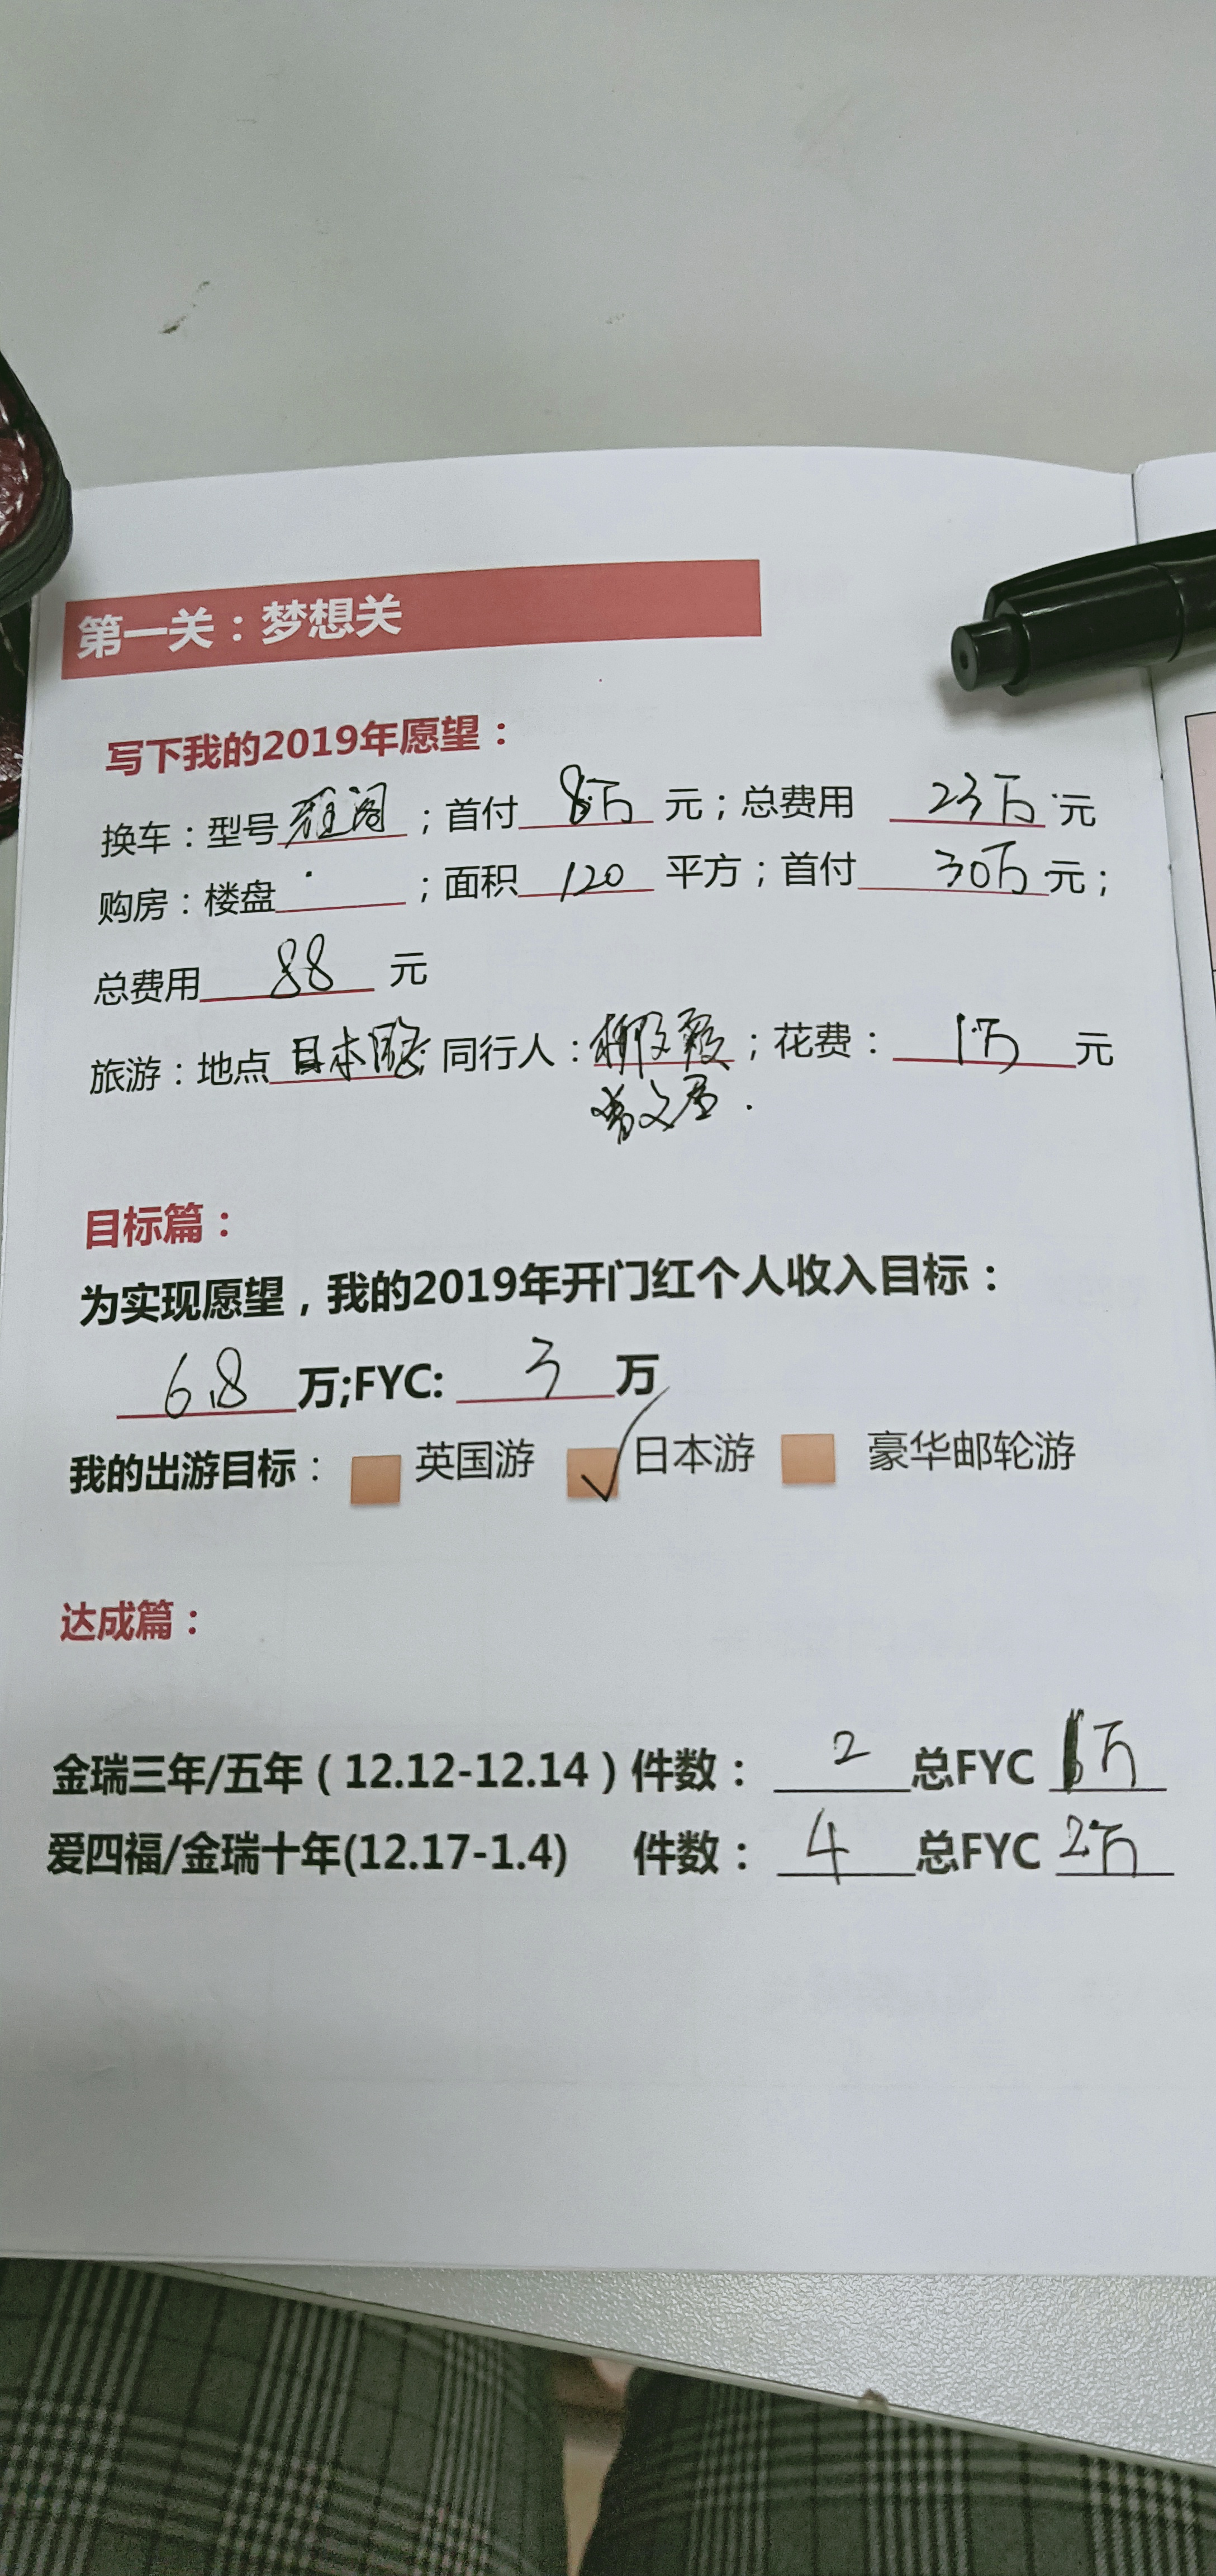 第一关：梦想关
写下我的2019年愿望：
换车：型号雅阁；首付8万元；总费用23万元
购房：楼盘；面积120平方；首付30万元；
总费用88元
旅游：地点日本 同行人：；花费：1万元
目标篇：
为实现愿望，我的2019年开门红个人收入目标：
6.8万;FYC:3万
我的出游目标： 英国游 ✓日本游 豪华邮轮游
达成篇：
金瑞三年/五年（12.12-12.14）件数：2总FYC 1万
爱四福/金瑞十年(12.17-1.4) 件数：4总FYC 2万